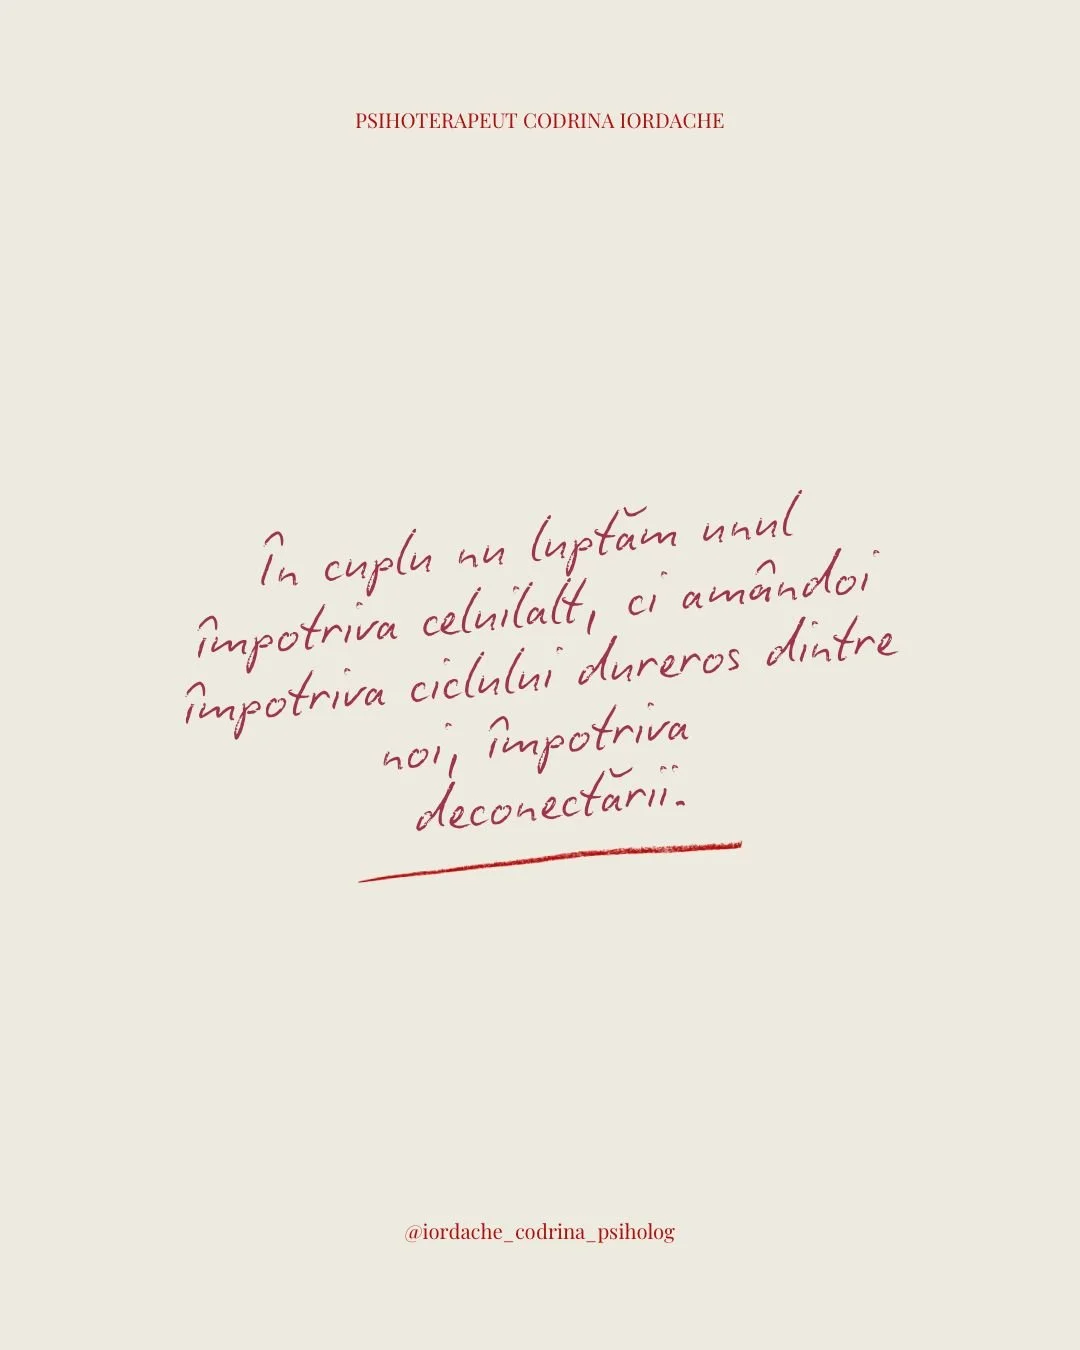 PSIHOTERAPEUT CODRINA IORDACHE
În cuplu nu luptăm unul
împotriva celuilalt, ci amândoi
împotriva ciclului dureros dintre
noi, împotriva
deconectării.
@iordache_codrina_psiholog